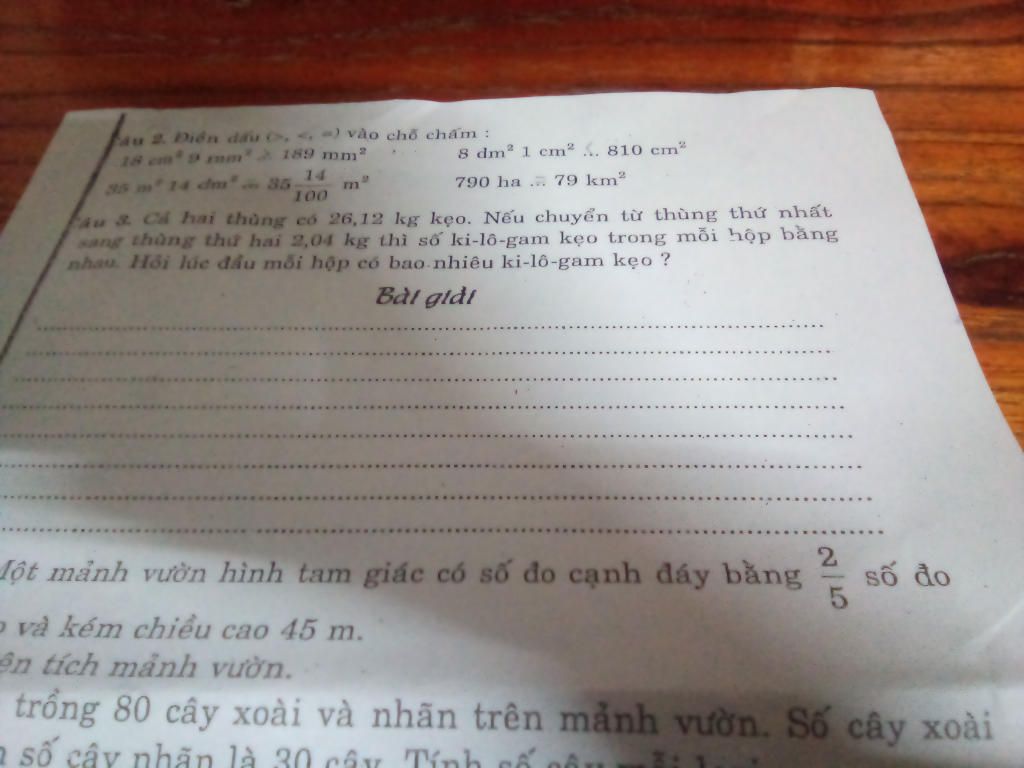 âu 2. Điền dấu (>, <, =) vào chỗ chấm :
18 cm² 9 mm² > 189 mm² 8 dm² 1 cm² ... 810 cm²
35 m² 14 dm² = 35 14/100 m² 790 ha ... 79 km²
âu 3. Cả hai thùng có 26,12 kg kẹo. Nếu chuyển từ thùng thứ nhất
sang thùng thứ hai 2,04 kg thì số ki-lô-gam kẹo trong mỗi hộp bằng
nhau. Hỏi lúc đầu mỗi hộp có bao nhiêu ki-lô-gam kẹo ?
Bài giải
Một mảnh vườn hình tam giác có số đo cạnh đáy bằng 2/5 số đo
và kém chiều cao 45 m.
ện tích mảnh vườn.
trồng 80 cây xoài và nhãn trên mảnh vườn. Số cây xoài
số cây nhãn là 30 cây. Tính số cây mỗi